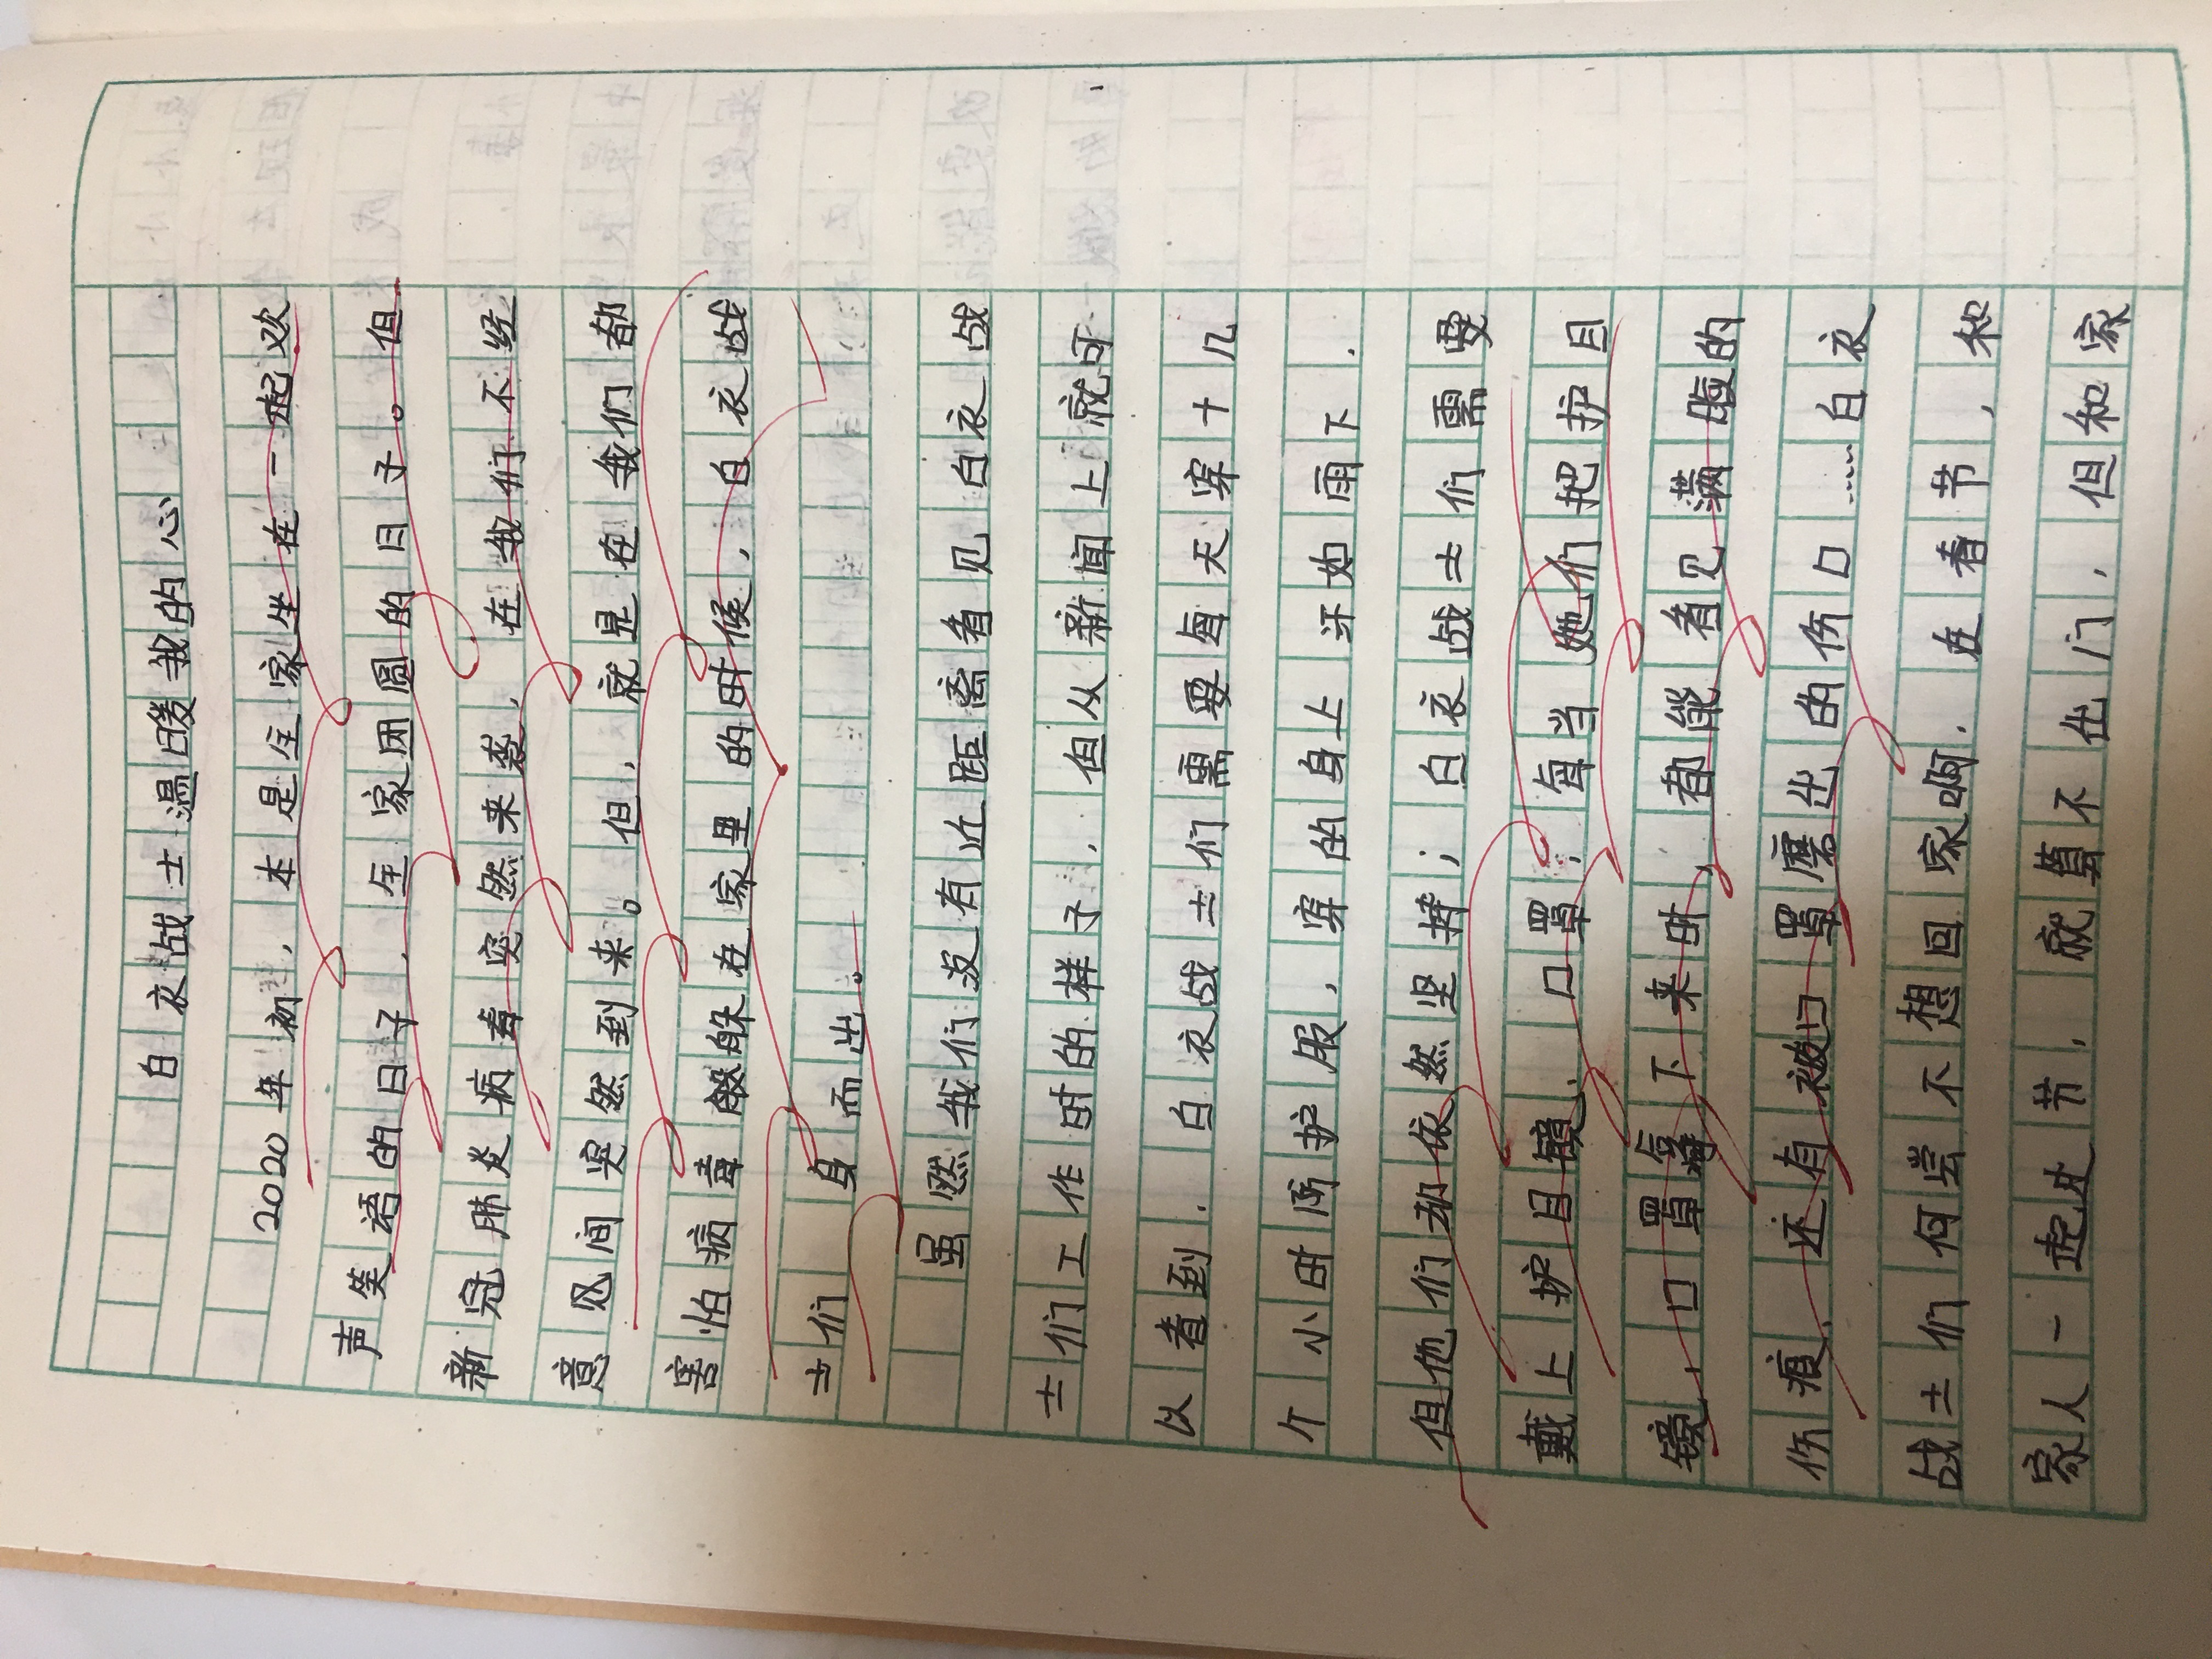 白衣战士温暖我的心
2020年初，本是住家坐在一起欢
声笑语的日子，全家团圆的日子。但
新冠肺炎病毒突然来袭，在我们不经
意见间突然到来。但，就是在我们都
害怕病毒般躲在家里的时候，白衣战
士们身而出。
虽然我们没有近距离看见白衣战
士们工作时的样子，但从新闻上就可
以看到，白衣战士们需要每天穿十几
个小时防护服，穿的身上汗如雨下.
但他们却依然坚持；白衣战士们需要
戴上护目镜、口罩；每当她们把护目
镜，口罩解下来时，都能看见满脸的
伤痕，还有被口罩磨出的伤口……白衣
战士们何尝不想回家啊，在春节，和
家人一起过节，就算不出门，但和家